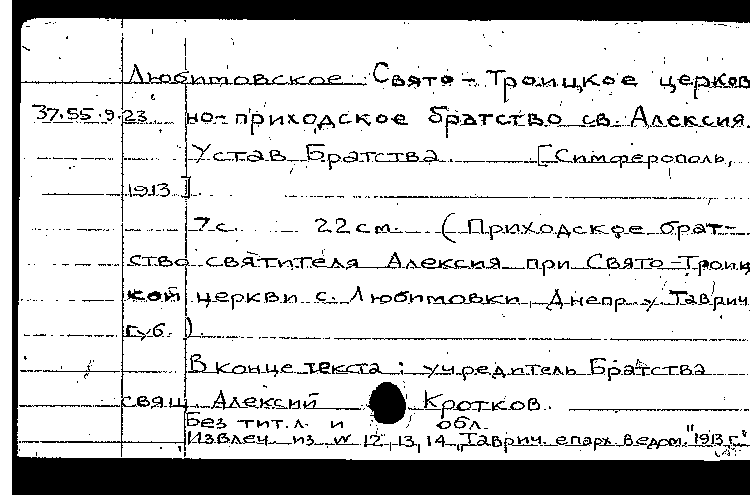 Любимовское Свято-Троицкое церков
37.55.9.23 но-приходское братство св. Алексия.
Устав Братства. [Симферополь,
1913].
7 с. 22 см. (Приходское брат-
ство святителя Алексия при Свято-Троиц
кой церкви с. Любимовки, Днепр. у. Таврич.
губ.).
В конце текста: учредитель Братства
свящ. Алексий Кротков.
Без тит. л. и обл.
Извлеч. из № 12, 13, 14 "Таврич. епарх. ведом." 1913 г."